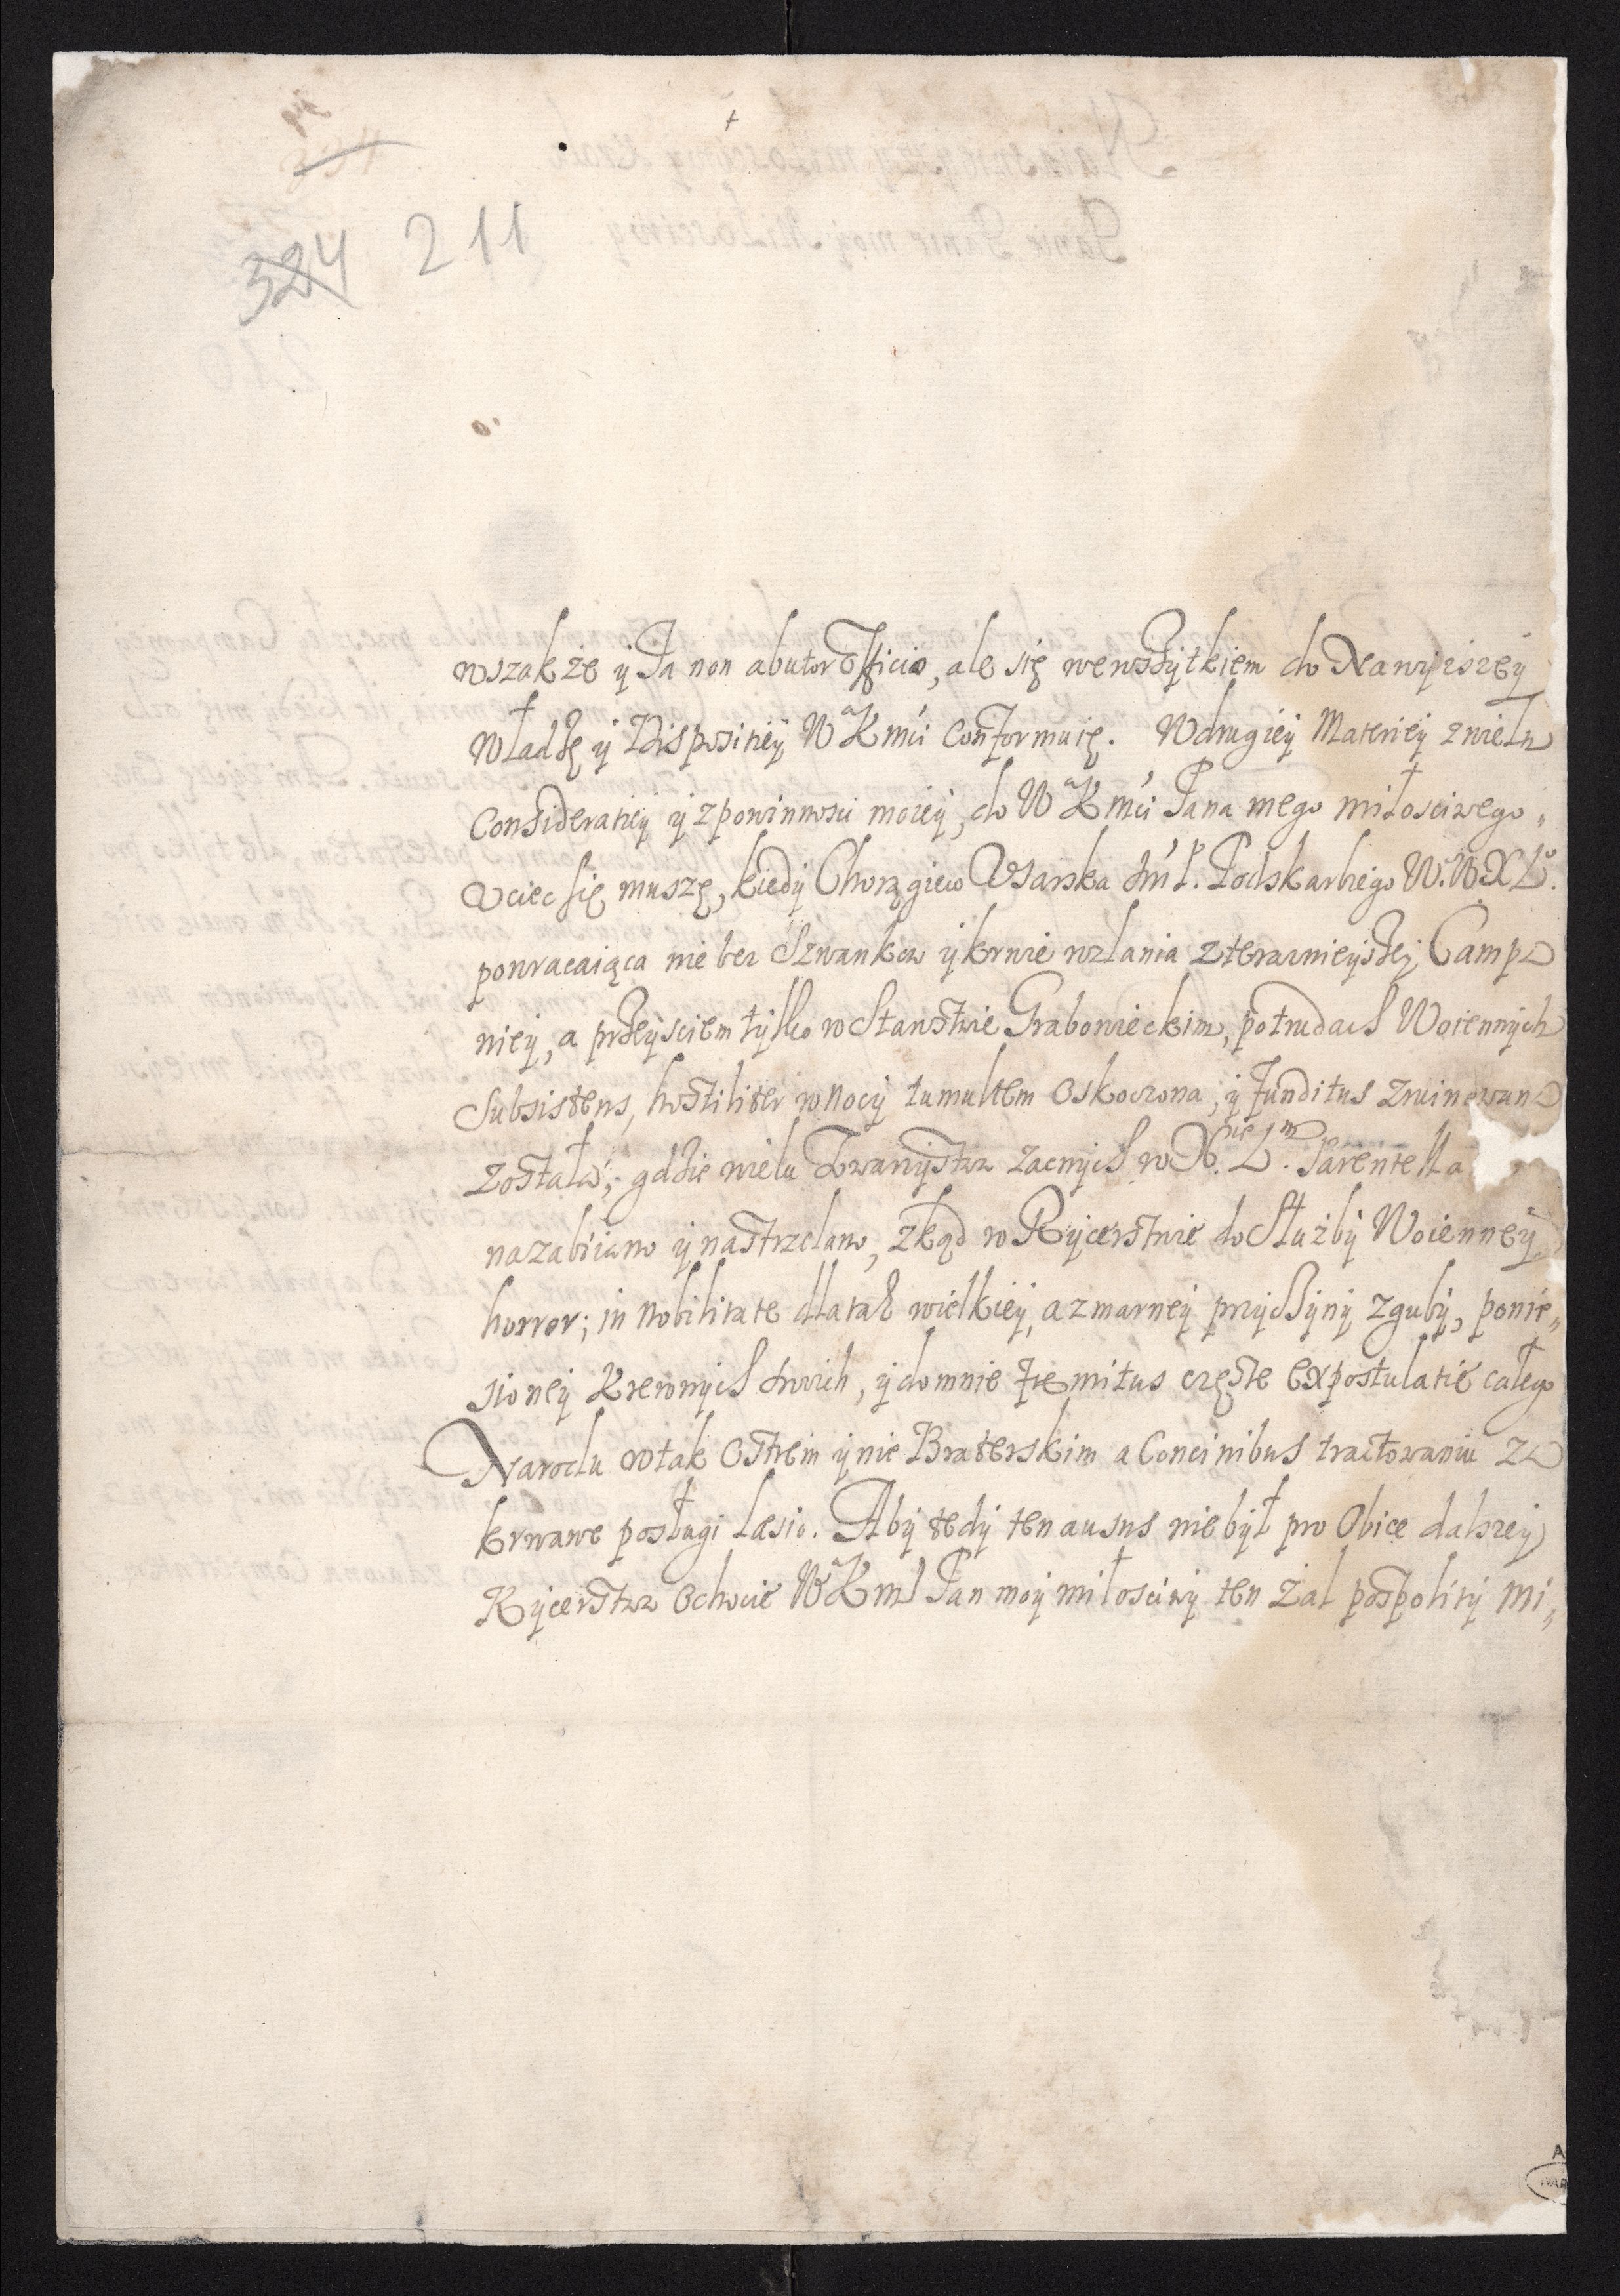 324 211
wszakże ÿ Ja non abutor Officio, ale się wewszÿtkiem do Nawÿzszeÿ
władzę ÿ Dispozitieÿ WKmći conformuię. Wdrugieÿ Materieÿ zwielu
Consideratieÿ ÿ zpowinnosci moieÿ, do WKmći Pana mego miłosciwego
Vciec się muszę, kiedÿ Chorągiew Vsarska Jmć P. Podskarbiego W. WXLo.
powracaiąca nie bez Szwanku ÿ krwie wzlania zterazznieÿszeÿ Campa
nieÿ, a przeÿsciem tÿlko w Starostwie Grabowieckim, po trudach Woiennÿch
Subsistens, hostiliter w nocÿ tumultem Oskoczona, ÿ funditus zruinowana
została; gdzie wielu Towarzÿstwa zacnÿch w X. Lm. Parentella
nazabiiano ÿ nastrzelano, zkąd w Rÿcerstwie do Służbÿ Woienneÿ
horror; in Nobilitate dla tak wielkieÿ, a zmarneÿ przÿczÿnÿ zgubÿ, ponie„
sioneÿ Krewnÿch swoich, ÿ do mnie fremitus częste expostulatie całego
Narodu o tak Ostrem ÿ nie Braterskim a Concivibus tractowaniu za
krwawe posługi Læsio. Abÿ tedÿ ten ausus nie bÿł pro Obice dalszeÿ
Rÿcerstwa Ochocie WKmć Pan moÿ miłosciwÿ ten żal pospolitÿ mi„